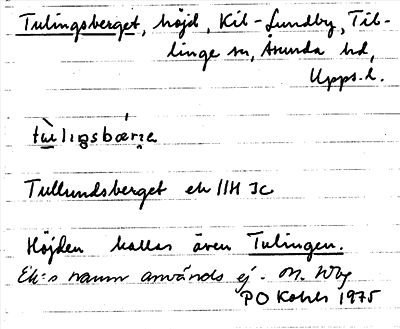 Tulingsberget, höjd, Kil-Lundby, Til-
linge sn, Åsunda hd,
Upps. l.
Tullundsberget ek 11H 3c
Höjden kallas även Tulingen.
Ek:s namn används ej. M. Wbg
PO Kohls 1975